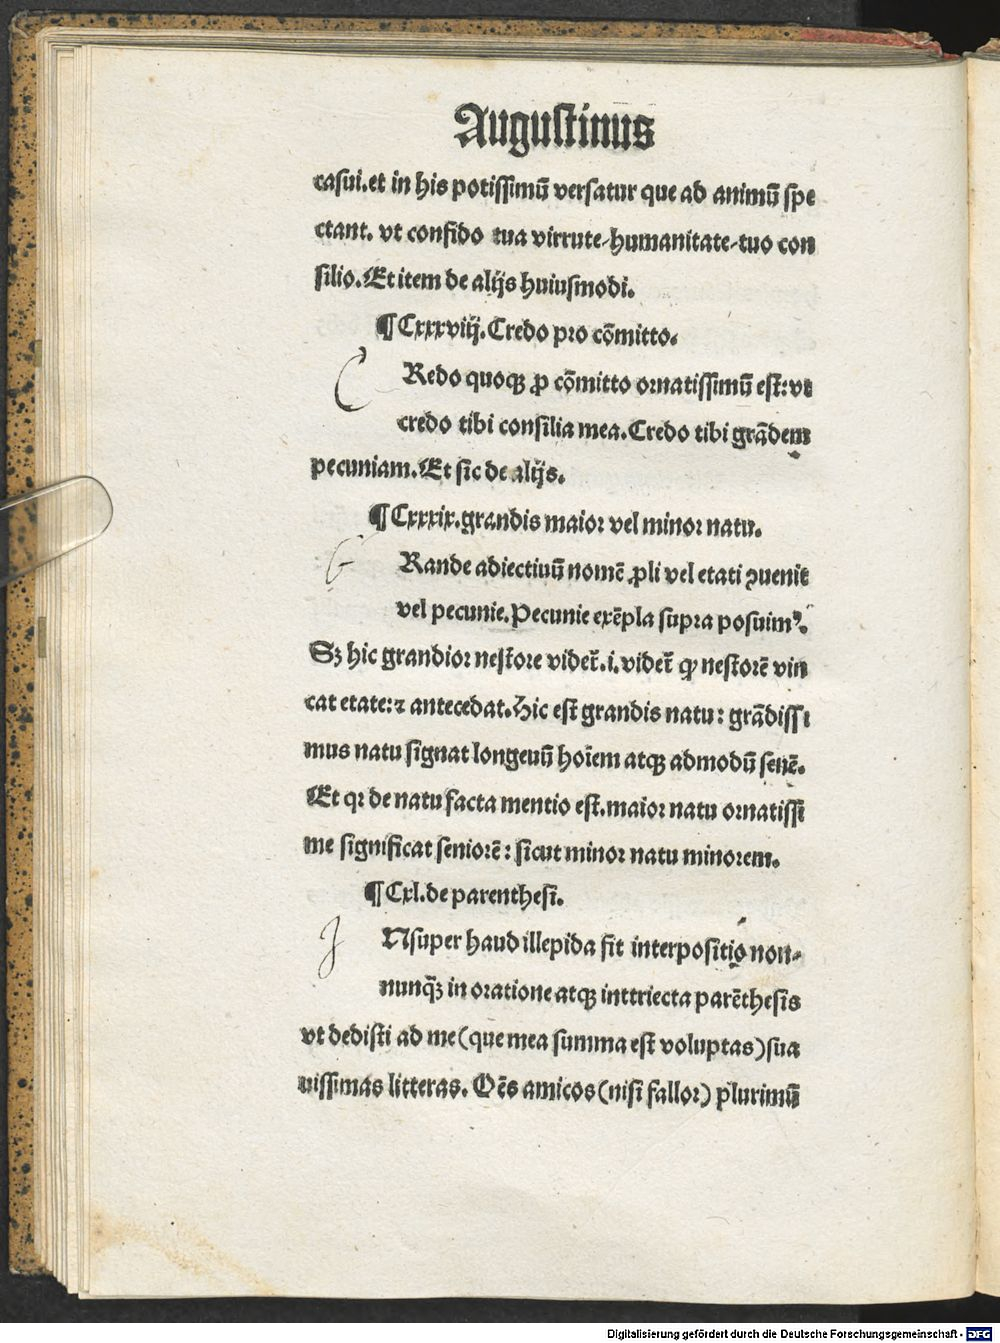 Augustinus
casui.et in his potissimū versatur que ad animū spe
ctant. vt confido tua virtute-humanitate-tuo con
silio. Et item de alijs huiusmodi.
¶ Cxxxviij. Credo pro cōmitto.
C Redo quoqꝫ ꝓ cōmitto ornatissimū est: vt
credo tibi consilia mea. Credo tibi grādem
pecuniam. Et sic de alijs.
¶ Cxxxix. grandis maior vel minor natu.
G Rande adiectiuū nomē ꝓli vel etati ꝯuenit
vel pecunie. Pecunie exēpla supra posuimꝰ.
Sꝫ hic grandior nestore videt̄. i. videt̄ ꝙ nestorē vin
cat etate: ⁊ antecedat. Hic est grandis natu: grādissi
mus natu signat longeuū hoīem atqꝫ admodū senē.
Et qꝛ de natu facta mentio est. maior natu ornatissi
me significat seniorē: sicut minor natu minorem.
¶ Cxl. de parenthesi.
I Nsuper haud illepida fit interpositio non-
nunq̄ꝫ in oratione atqꝫ inttriecta parēthesis
vt dedisti ad me (que mea summa est voluptas) sua
uissimas litteras. Oēs amicos (nisi fallor) plurimū
Digitalisierung gefördert durch die Deutsche Forschungsgemeinschaft - DFG